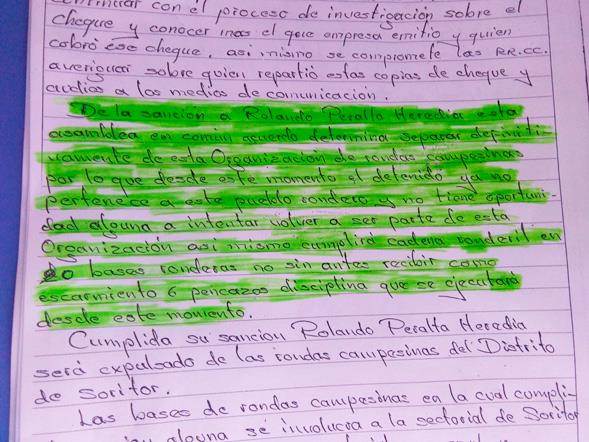 continuar con el proceso de investigación sobre el
cheque y conocer mas el que empresa emitio y quien
cobró ese cheque, asi mismo se compromete las RR.CC.
averiguar sobre quien repartió estas copias de cheque y
audios a los medios de comunicación.
De la sanción a Rolando Peralta Heredia esta
asamblea en común acuerdo determina separar definiti-
vamente de esta Organización de rondas campesinas
por lo que desde este momento el detenido ya no
pertenece a este pueblo rondero y no tiene oportuni-
dad alguna a intentar volver a ser parte de esta
Organización asi mismo cumplirá cadena ronderil en
20 bases ronderas no sin antes recibir como
escarmiento 6 pencazos disciplina que se ejecutará
desde este momento.
Cumplida su sancion Rolando Peralta Heredia
será expulsado de las rondas campesinas del Distrito
de Soritor.
Las bases de rondas campesinas en la cual cumpli-
alguna se involucra a la sectorial de Soritor